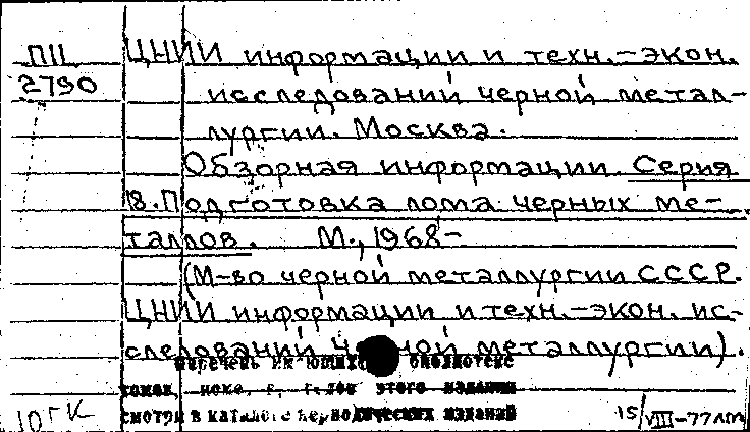 ПII ЦНИИ информации и техн.-экон.
2790 исследований черной метал-
лургии. Москва.
Обзорная информации. Серия
18. Подготовка лома черных ме-
таллов. М., 1968-
(М-во черной металлургии СССР.
ЦНИИ информации и техн.-экон. ис-
следований черной металлургии).
перечень библиотеке
этого издания
смотри в каталоге периодических изданий
10ГК 15/VIII-77